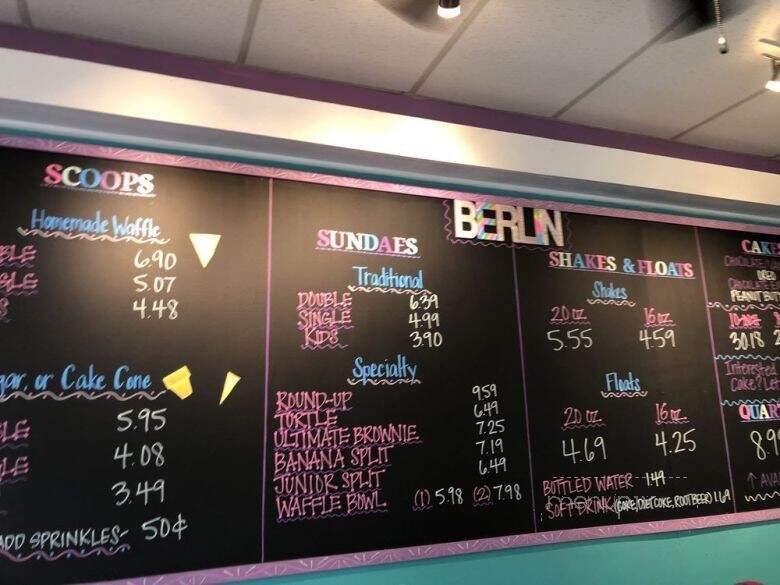 SCOOPS
Homemade Waffle
BLE 6.90
GLE 5.07
S 4.48
gar, or Cake Cone
BLE 5.95
GLE 4.08
3.49
ADD SPRINKLES- 50¢
BERLIN
SUNDAES
Traditional
DOUBLE 6.39
SINGLE 4.99
KIDS 3.90
Specialty
ROUND-UP 9.59
TURTLE 6.49
ULTIMATE BROWNIE 7.25
BANANA SPLIT 7.19
JUNIOR SPLIT 6.49
WAFFLE BOWL (1) 5.98 (2) 7.98
SHAKES & FLOATS
Shakes
20 oz. 16 oz.
5.55 4.59
Floats
20 oz. 16 oz.
4.69 4.25
BOTTLED WATER 1.49
SOFT DRINK (COKE, DIET COKE, ROOT BEER) 1.69
CAKE
CHOCOLATE
OREO
CHOCOLATE
PEANUT BU
30.18 2
Interested
Cake? Let
QUAR
8.9
↑ AVA